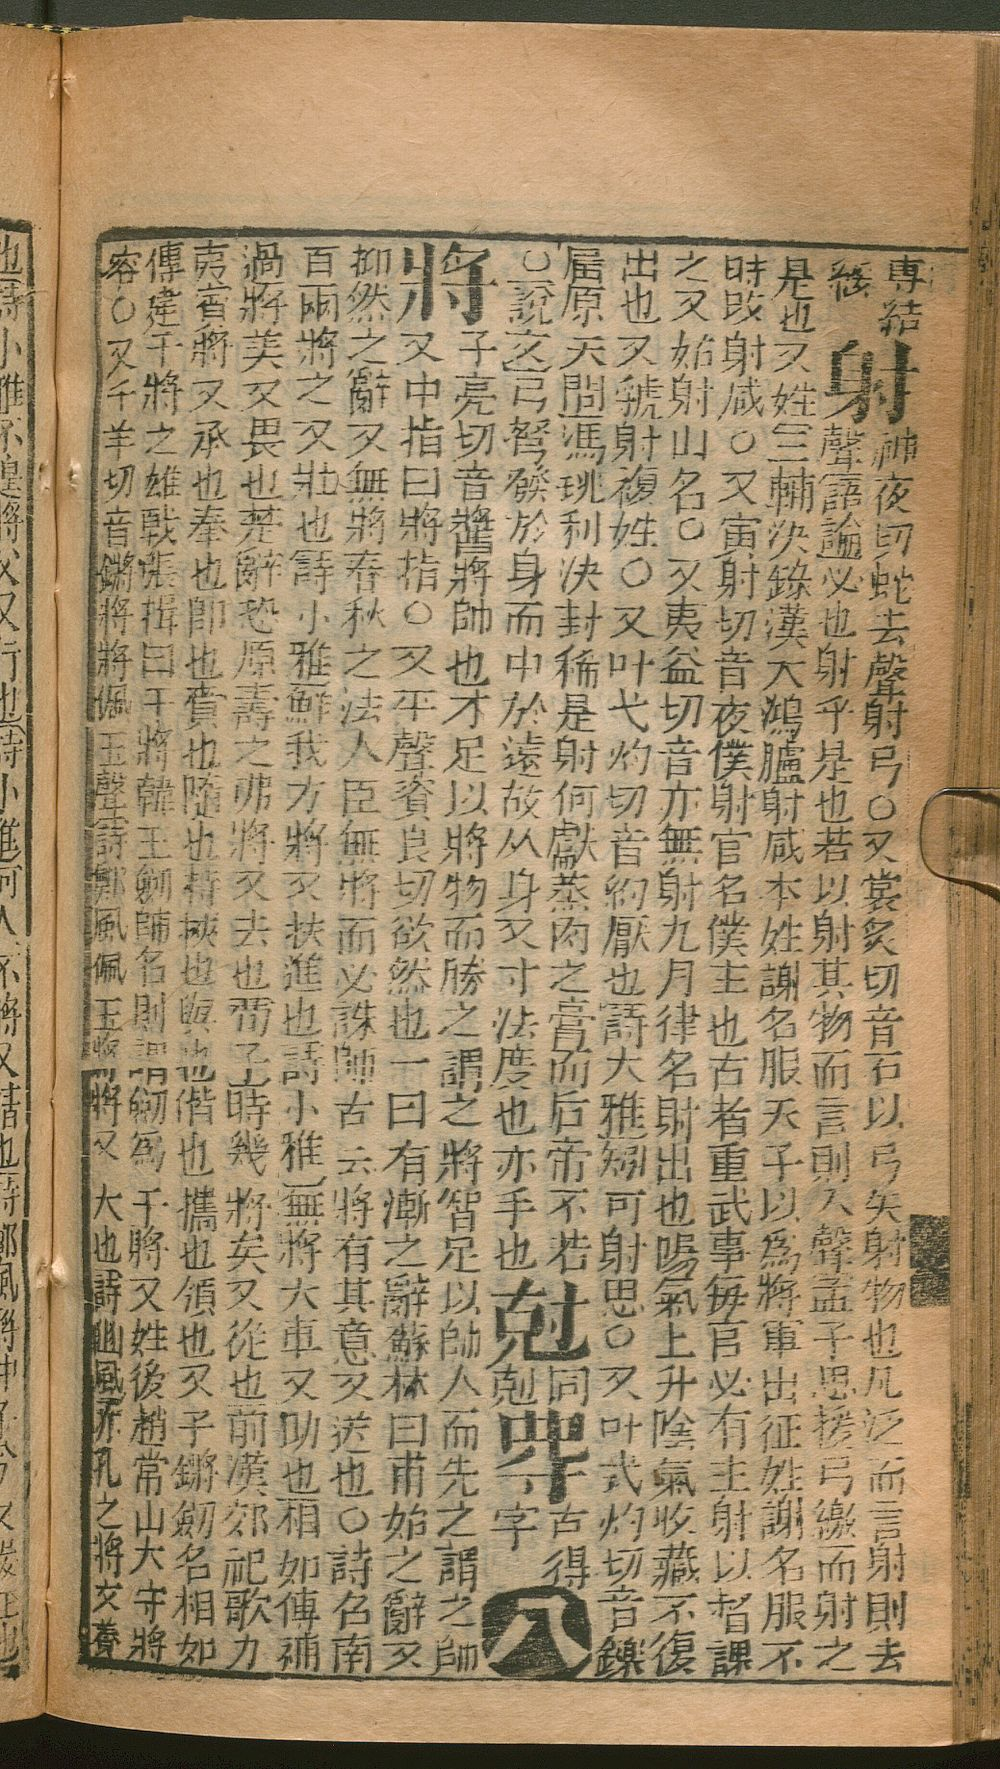 專結
經射神夜切蛇去聲射弓○又裳炙切音石以弓矢射物也凡泛而言射則去
聲語論必也射乎是也若以射其物而言則入聲孟子思援弓繳而射之
是也又姓三輔決錄漢大鴻臚射咸本姓謝名服天子以為將軍出征姓謝名服不
時改射咸○又寅射切音夜僕射官名僕主也古者重武事每官必有主射以督課
之又姑射山名○又夷益切音亦無射九月律名射出也陽氣上升陰氣收藏不復
出也又虢射複姓○又叶弋灼切音約厭也詩大雅矧可射思○又叶式灼切音鑠
屈原天問馮珧利決封豨是射何獻蒸肉之膏而后帝不若
○說文弓弩發於身而中於遠故从身又寸法度也亦手也尅同剋㝵古得字八
將子亮切音醬將帥也才足以將物而勝之謂之將智足以帥人而先之謂之帥
又中指曰將指○又平聲資良切欲然也一曰有漸之辭蘇林曰甫始之辭又
抑然之辭又無將春秋之法人臣無將而必誅師古云將有其意又送也○詩名南
百兩將之又壯也詩小雅鮮我方將又扶進也詩小雅無將大車又助也相如傳補
過將美又畏也楚辭恐原壽之弗將又去也荀子時幾將矣又從也前漢郊祀歌九
夷賓將又承也奉也卽也賫也隨也持也挾也與也偕也攜也領也又子鏘劒名相如
傳建干將之雄戟張揖曰干將韓王劒師名則謂劒為干將又姓後趙常山太守將
容○又千羊切音鏘將將佩玉聲詩鄭風佩玉將將又大也詩豳風亦孔之將文養